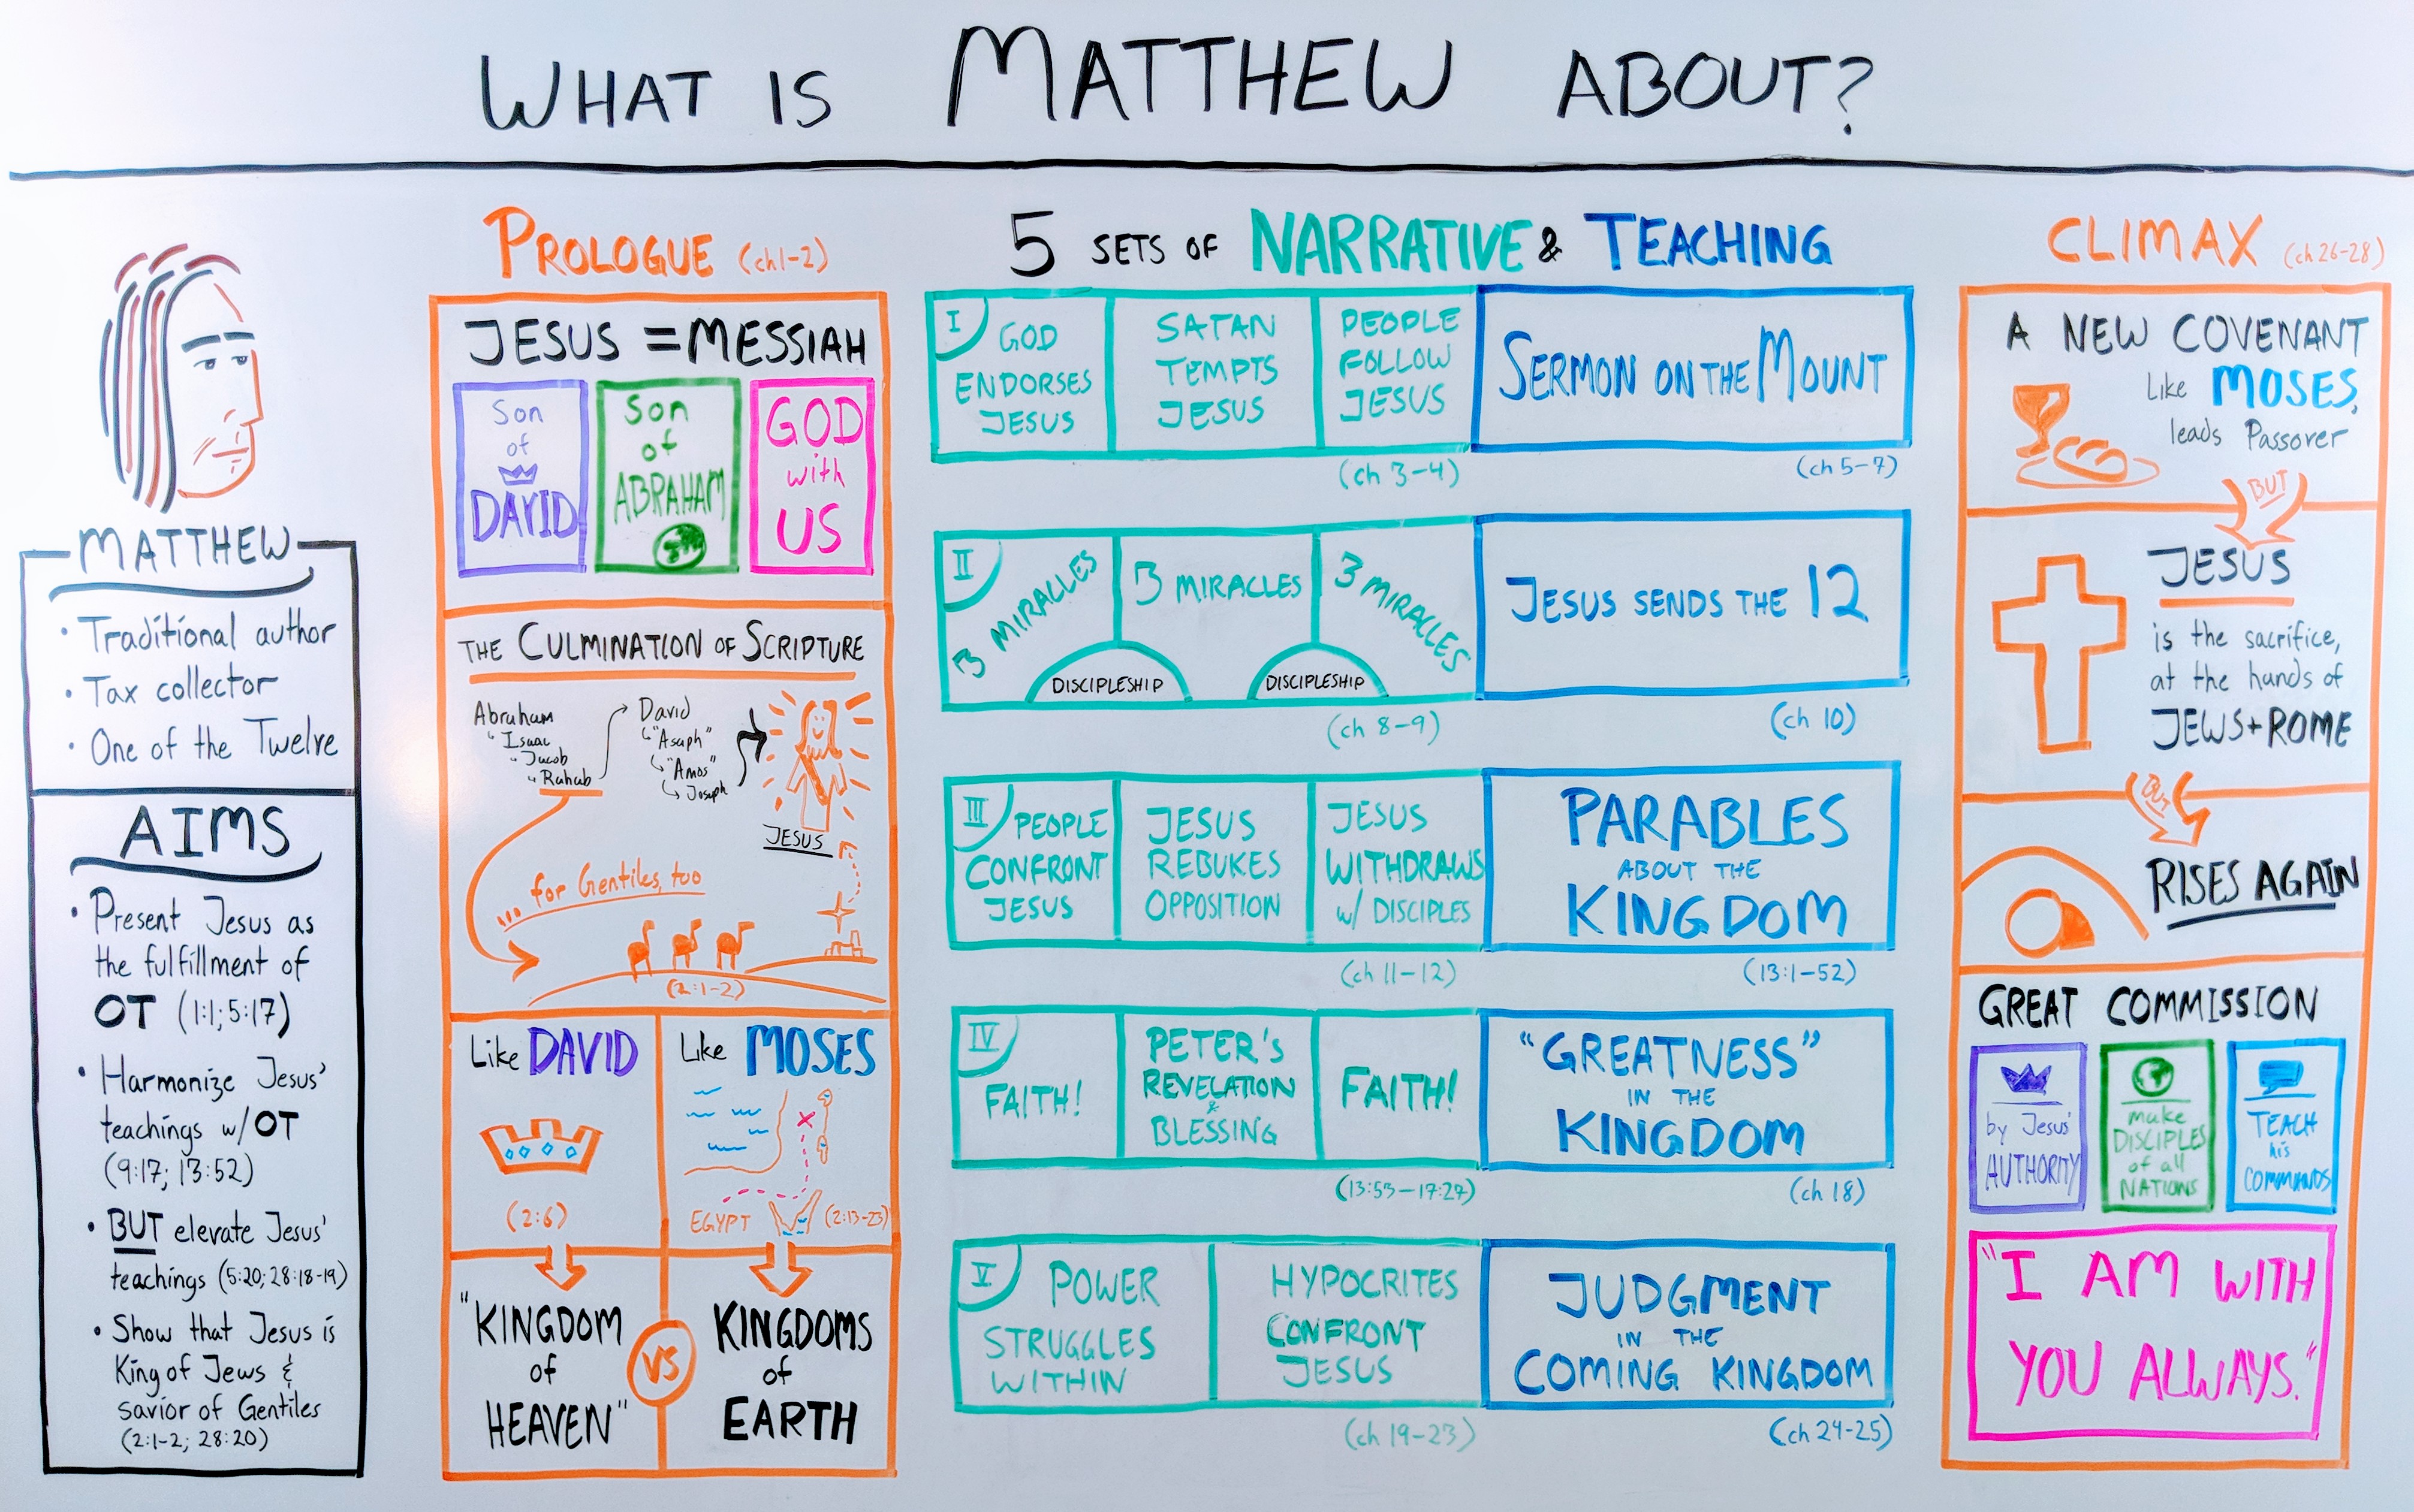 WHAT IS MATTHEW ABOUT?
MATTHEW
• Traditional author
• Tax collector
• One of the Twelve
AIMS
• Present Jesus as
the fulfillment of
OT (1:1; 5:17)
• Harmonize Jesus'
teachings w/ OT
(9:17; 13:52)
• BUT elevate Jesus'
teachings (5:20; 28:18-19)
• Show that Jesus is
King of Jews &
savior of Gentiles
(2:1-2; 28:20)
PROLOGUE (ch 1-2)
JESUS = MESSIAH
Son
of
DAVID
Son
of
ABRAHAM
GOD
with
US
THE CULMINATION OF SCRIPTURE
Abraham
Isaac
Jacob
Rahab
David
"Asaph"
"Amos"
Joseph
JESUS
... for Gentiles, too
(2:1-2)
Like DAVID
(2:6)
Like MOSES
EGYPT
(2:13-23)
"KINGDOM
of
HEAVEN"
VS
KINGDOMS
of
EARTH
5 SETS OF NARRATIVE & TEACHING
I
GOD
ENDORSES
JESUS
SATAN
TEMPTS
JESUS
PEOPLE
FOLLOW
JESUS
(ch 3-4)
SERMON ON THE MOUNT
(ch 5-7)
II
3 MIRACLES
3 MIRACLES
3 MIRACLES
DISCIPLESHIP
DISCIPLESHIP
(ch 8-9)
JESUS SENDS THE 12
(ch 10)
III
PEOPLE
CONFRONT
JESUS
JESUS
REBUKES
OPPOSITION
JESUS
WITHDRAWS
w/ DISCIPLES
(ch 11-12)
PARABLES
ABOUT THE
KINGDOM
(13:1-52)
IV
FAITH!
PETER'S
REVELATION
&
BLESSING
FAITH!
(13:53-17:27)
"GREATNESS"
IN THE
KINGDOM
(ch 18)
V
POWER
STRUGGLES
WITHIN
HYPOCRITES
CONFRONT
JESUS
(ch 19-23)
JUDGMENT
IN THE
COMING KINGDOM
(ch 24-25)
CLIMAX (ch 26-28)
A NEW COVENANT
Like MOSES,
leads Passover
BUT
JESUS
is the sacrifice,
at the hands of
JEWS + ROME
BUT
RISES AGAIN
GREAT COMMISSION
by Jesus'
AUTHORITY
make
DISCIPLES
of all
NATIONS
TEACH
his
COMMANDS
"I AM WITH
YOU ALWAYS."